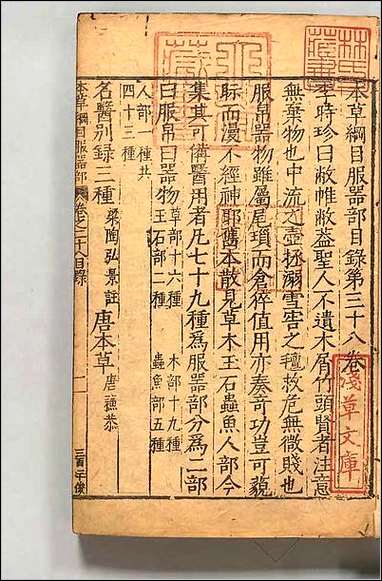 本草綱目服器部目録第三十八卷
李時珍曰敝帷敝蓋聖人不遺木屑竹頭賢者注意
無棄物也中流之壺拯溺雪窖之氊救危無微賤也
服帛器物雖屬尾瑣而倉猝值用亦奏奇功豈可藐
視而漫不經神耶舊本散見草木玉石蟲魚人部今
集其可備醫用者凡七十九種爲服器部分爲二部
曰服帛曰器物
草部十六種 木部十九種
玉石部二種 蟲魚部五種
人部一種共
四十三種
名醫別録三種 梁陶弘景註 唐本草 唐蘇恭
本草綱目服器部 卷之三十八目録 一
林氏藏書
淺草文庫